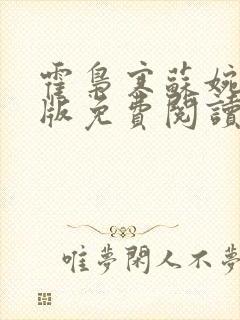 霍梟寒蘇婉
版免費閱讀
唯夢閑人不夢